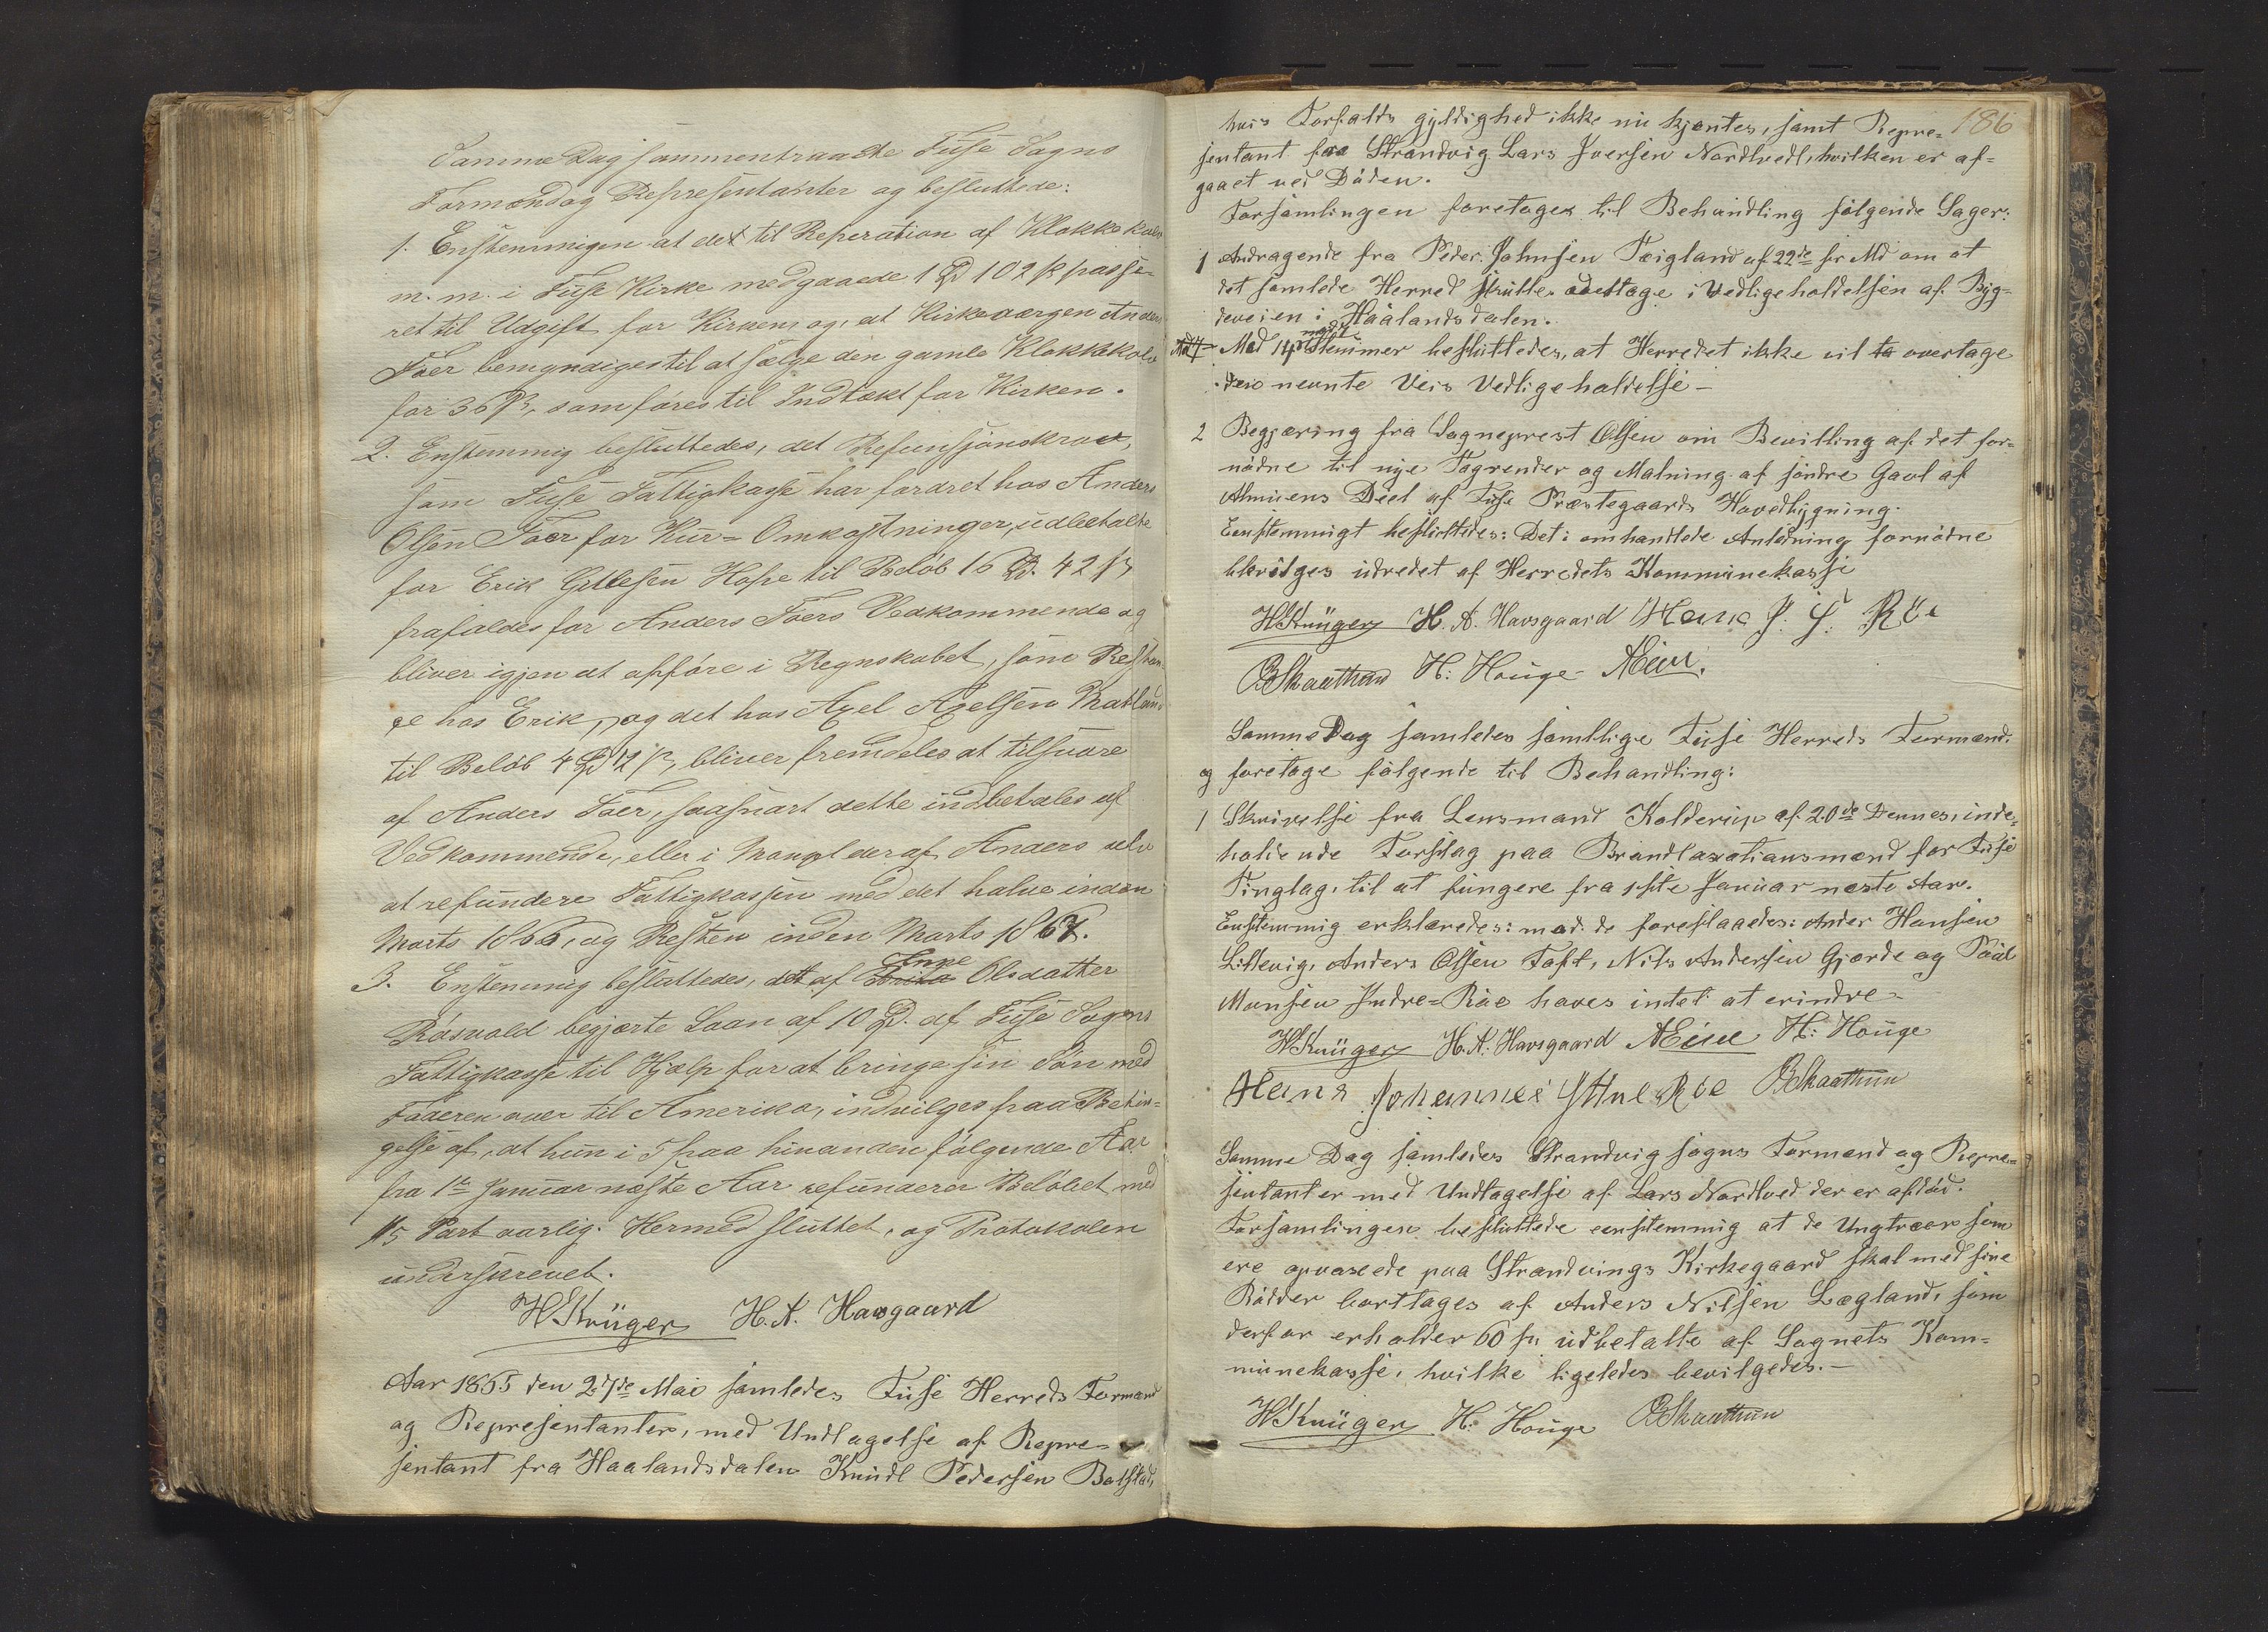 Samme Dag sammentraadte Fuse Sogns
Formænd og Repræsentanter og besluttede:
1. Enstemmigen at det til Reperation af Klokkekolv
m. m. i Fuse Kirke medgaaede 1 Spd 102 ß passe-
ret til Udgift for Kirken, og, at Kirkeværgen Anders
Toer bemyndiges til at sælge den gamle Klokkekolv
for 36 ß, som føres til Indtækt for Kirken.
2. Enstemmig besluttedes, det Refunsjonskrav,
som Fuse Fattigkasse har fordret hos Anders
Olsen Toer for Kur= Omkostninger, udbetalte
for Erik Gitlesen Hope til Beløb 16 Spd. 42 ß
frafaldes for Anders Toers Vedkommende og
bliver igjen at opføre i Regnskabet, som Restan-
ce hos Erik, og det hos Axel Axelsen Matland
til Beløb 4 Spd 12 ß, bliver fremdeles at tilsvare
af Anders Toer, saasnart dette indbetales af
Vedkommende, eller i Mangel deraf Anders selv
at refundere Fattigkassen med det halve inden
Marts 1866, og Resten inden Marts 1867.
3. Enstemmig besluttedes, det af Anne Olsdatter
Røsvold begjærte Laan af 10 Spd. af Fuse Sogns
Fattigkasse til Hjælp for at bringe sin Søn med
Faderen over til Amerika, indvilges paa Betin=
gelse af, at hun i 5 paa hinanden følgende Aar
fra 1te Januar næste Aar refunderer Beløbet med
1/5 Part aarlig. Hermed sluttet, og Protokolen
underskrevet.
H Krüger H. A. Havsgaard
Aar 1865 den 27de Mai samledes Fuse Herreds Formænd
og Repræsentanter, med Undtagelse af Repre-
sentant fra Haalandsdalen Knudt Pedersen Bolstad,
186
hvis Forfalds gyldighed ikke nu kjentes, samt Repre=
sentant fra Strandvig Lars Iversen Nordtvedt, hvilken er af=
gaaet ved Døden.
Forsamlingen foretoges til Behandling følgende Sager:
1 Andragende fra Peder Johnsen Teigland af 22de f. Md om at
det samlede Herred skulle overtage i Vedligeholdelsen af Byg=
deveien i Haalandsdalen.
Med 14 Stemmer besluttedes, at Herredet ikke vil overtage
den nevnte Veis Vedligeholdelse —
2 Begjæring fra Sogneprest Olsen om Bevilling af det for=
nødne til nye Tagrender og Malning af søndre Gavl af
Almuens Deel af Fuse Præstegaards Hovedbygning.
Eenstemmigt besluttedes: Det i omhandlede Anledning fornødne
bliver udredet af Herredets Kommunekasse
H Krüger H. A. Havsgaard Hans J. Y. Röe
B Skaathun H: Houge A Eide.
Samme Dag samledes samtlige Fuse Herreds Formænd
og foretoge følgende til Behandling:
1 Skrivelse fra Lensmand Kolderup af 20de Dennes, inde=
holdende Forslag paa Brandtaxationsmænd for Fuse
Tinglag, til at fungere fra 1ste Januar næste Aar.
Enstemmig erklæredes: mod de foreslaaede: Ander Hansen
Littevig, Anders Olsen Toft, Nils Andersen Gjærde og Paal
Monsen Indre=Røe haves intet at erindre —
H Krüger H. A. Havsgaard A Eide H: Houge
Hans Johannes Ytre Röe B Skaathun
Samme Dag samledes Strandvig sogns Formænd og Repre=
sentanter med Undtagelse af Lars Nordtved der er afdød.
Forsamlingen besluttede eenstemmig at de Ungtræer som
ere opvoxede paa Strandvings Kirkegaard skal med sine
Rødder borttages af Anders Nilsen Lægland, som
derfor erholder 60 ß udbetalte af Sognets Kom=
munekasse, hvilke ligeledes bevilgedes. —
H Krüger H: Houge B Skaathun